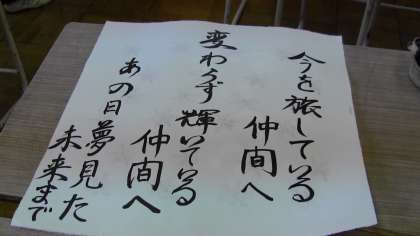 今を旅している
仲間へ
変わらず輝いている
仲間へ
あの日夢見た
未来まで